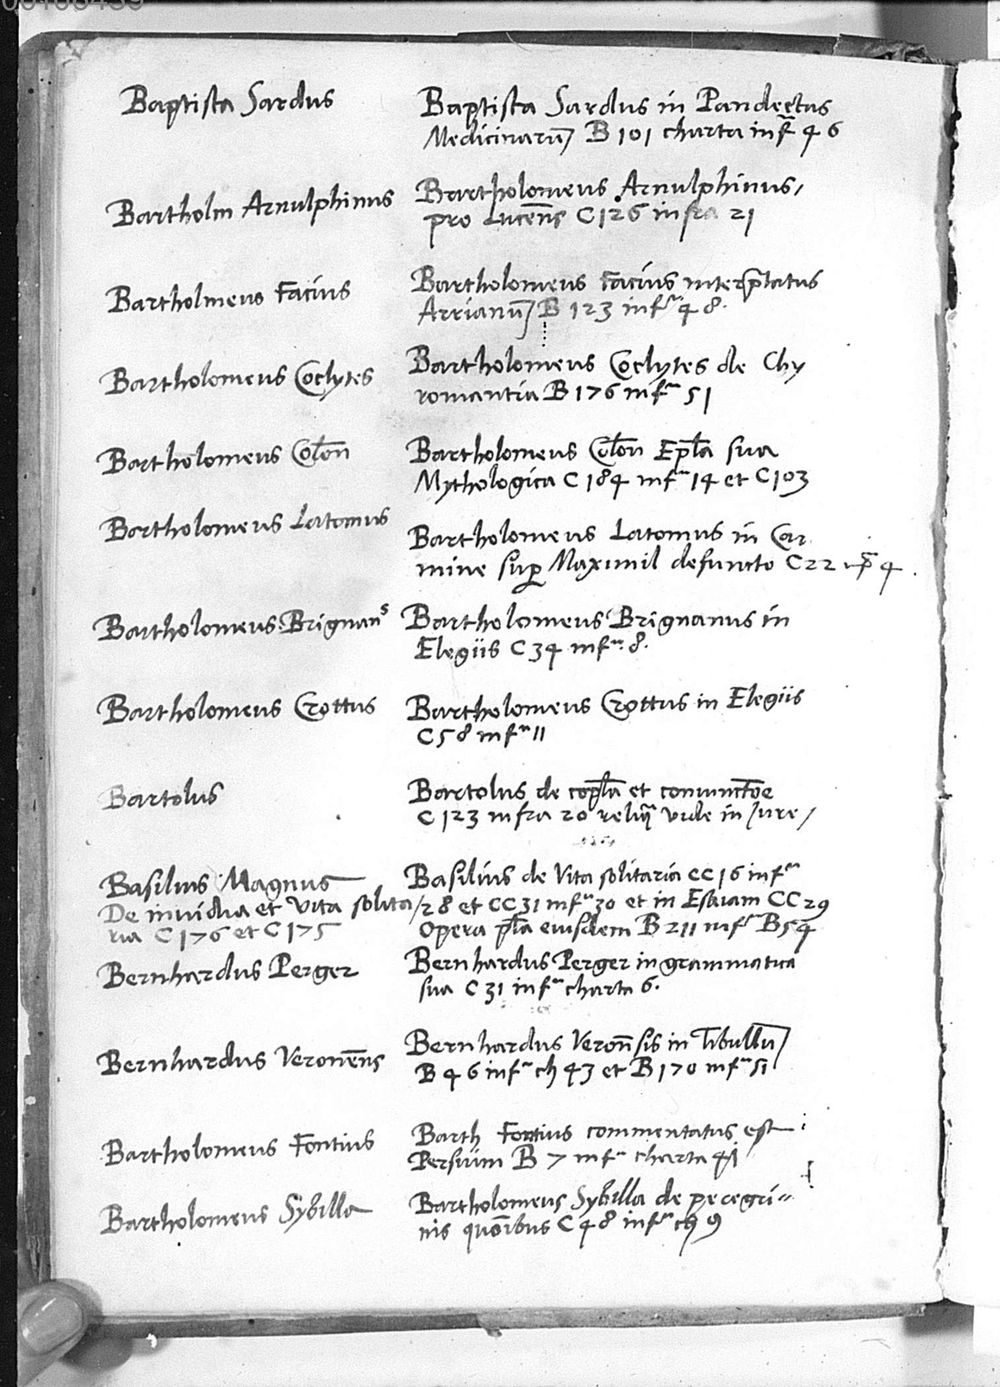 Baptista Sardus
Baptista Sardus in Pandectus
Medicinarū B 101 charta infr̄ 46
Bartholm Arnulphinus
Bartholomeus Arnulphinus,
pro Lucēns C126 infra 21
Bartholmeus Facius
Bartholomeus Facius interp̄tatus
Arrianū B 123 infr 48.
Bartholomeus Coclytes
Bartholomeus Coclytes de Chy
romantia B 176 infr 51
Bartholomeus Col̄on
Bartholomeus Col̄on Ep̄la sua
Mythologica C 184 infr 14 et C103
Bartholomeus Latomus
Bartholomeus Latomus in Car
mine sup Maximil defuncto C22 4.
Bartholomeus Brignans
Bartholomeus Brignanus in
Elegiis C 34 infr 8.
Bartholomeus Crottus
Bartholomeus Crottus in Elegiis
C 58 infr 11
Bartolus
Bartolus de cop̄la et coniunct̄oe
C 123 infra 20 reliq vide in Jure/
Basilius Magnus
Basilius de Vita solitaria CC16 infr
De invidia et Vita solita/
28 et CC 31 infr 30 et in Esaiam CC 29
ria C176 et C175
Opera p̄la eiusdem B 211 infr B54
Bernhardus Perger
Bernhardus Perger in grammatica
sua C 31 infr charta 6.
Bernhardus Veronēns
Bernhardus Veron̄sis in Tibullū
B 46 infr ch 43 et B170 infr 51
Bartholomeus Fontius
Barth Fontius commentatus est
Persium B 7 infr charta 41
Bartholomeus Sybilla
Bartholomeus Sybilla de peregri=
nis quōibus C 48 infr ch 9